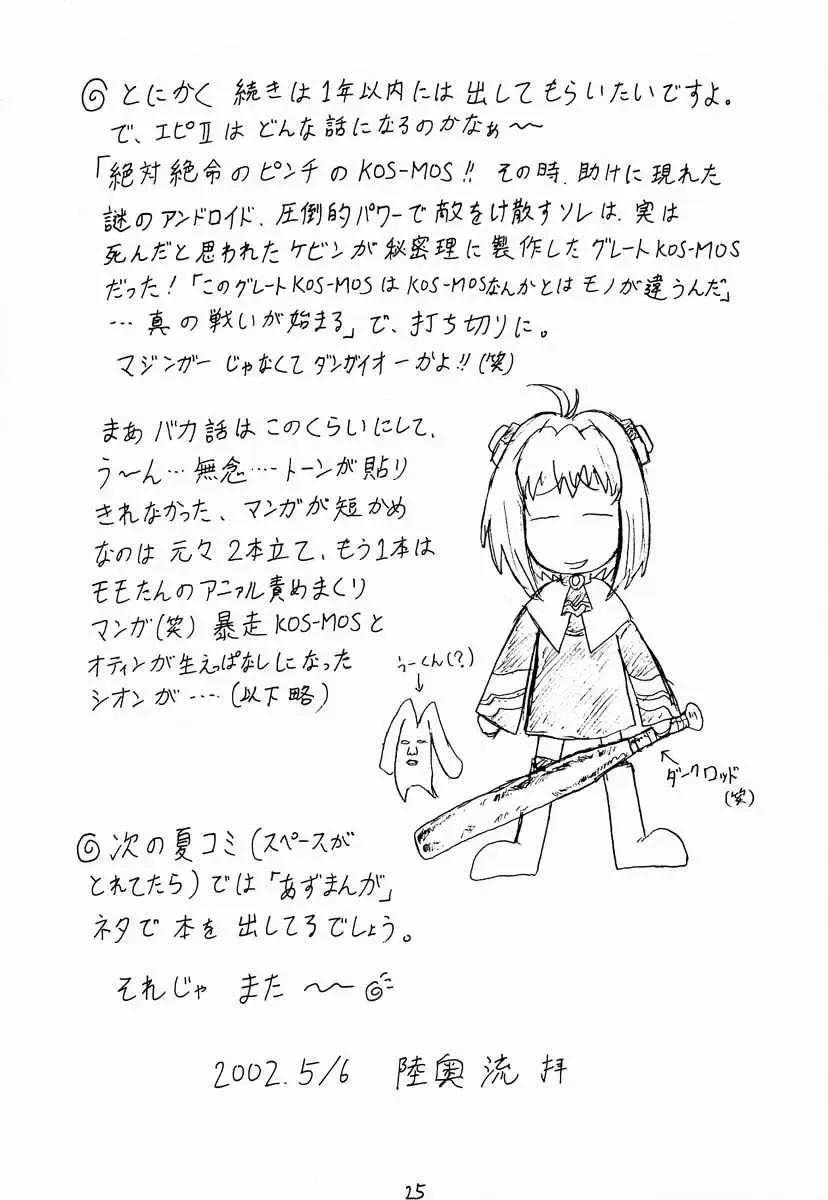 ◎とにかく 続きは1年以内には出してもらいたいですよ。
で、エピⅡは どんな話になるのかなぁ〜〜
「絶対絶命のピンチのKOS-MOS!! その時、助けに現れた
謎のアンドロイド、圧倒的パワーで敵をけ散すソレは、実は
死んだと思われたケビンが秘密理に製作したグレートKOS-MOS
だった！「このグレートKOS-MOSはKOS-MOSなんかとはモノが違うんだ」
…真の戦いが始まる」で、打ち切りに。
マジンガーじゃなくてダンガイオーかよ!!(笑)
まぁ バカ話はこのくらいにして、
う〜ん…無念‥‥トーンが貼り
きれなかった、マンガが短かめ
なのは 元々 2本立て、もう1本は
モモたんのアニァル責めまくり
マンガ(笑) 暴走KOS-MOSと
オティンが生えっぱなしになった
シオンが‥‥(以下略)
うーくん(?)
ダンクロッド
(笑)
◎次の夏コミ(スペースが
とれてたら)では「あずまんが」
ネタで 本を 出してるでしょう。
それじゃ また 〜〜
2002.5/6 陸奥 流 拝
25